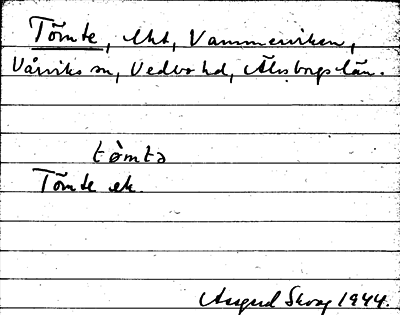 Tömte, lht, Vammerviken,
Vårviks sn, Vedbo hd, Älvsborgs län.
tömta
Tömte ek.
Skog 1944.